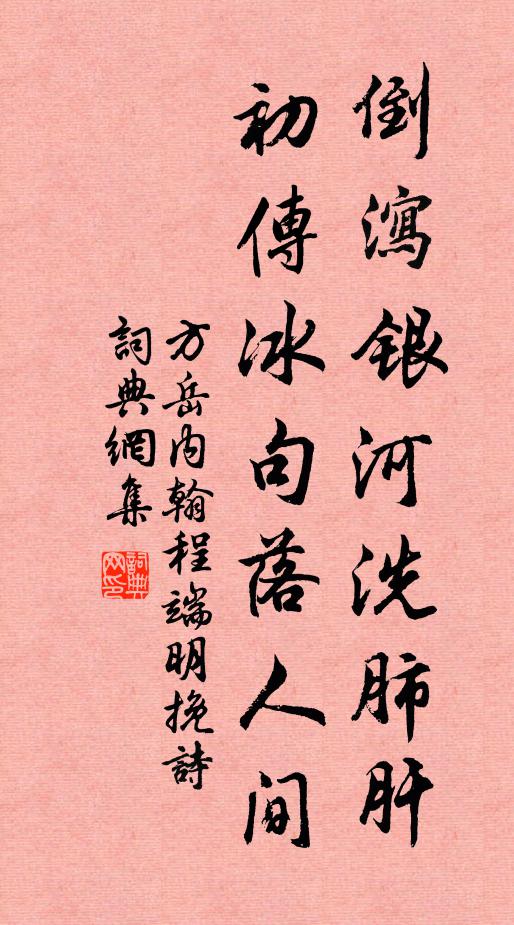 倒瀉銀河洗肺肝
初傳冰句落人间
方岳内翰程端明挽詩
詞典網集
詞典网印